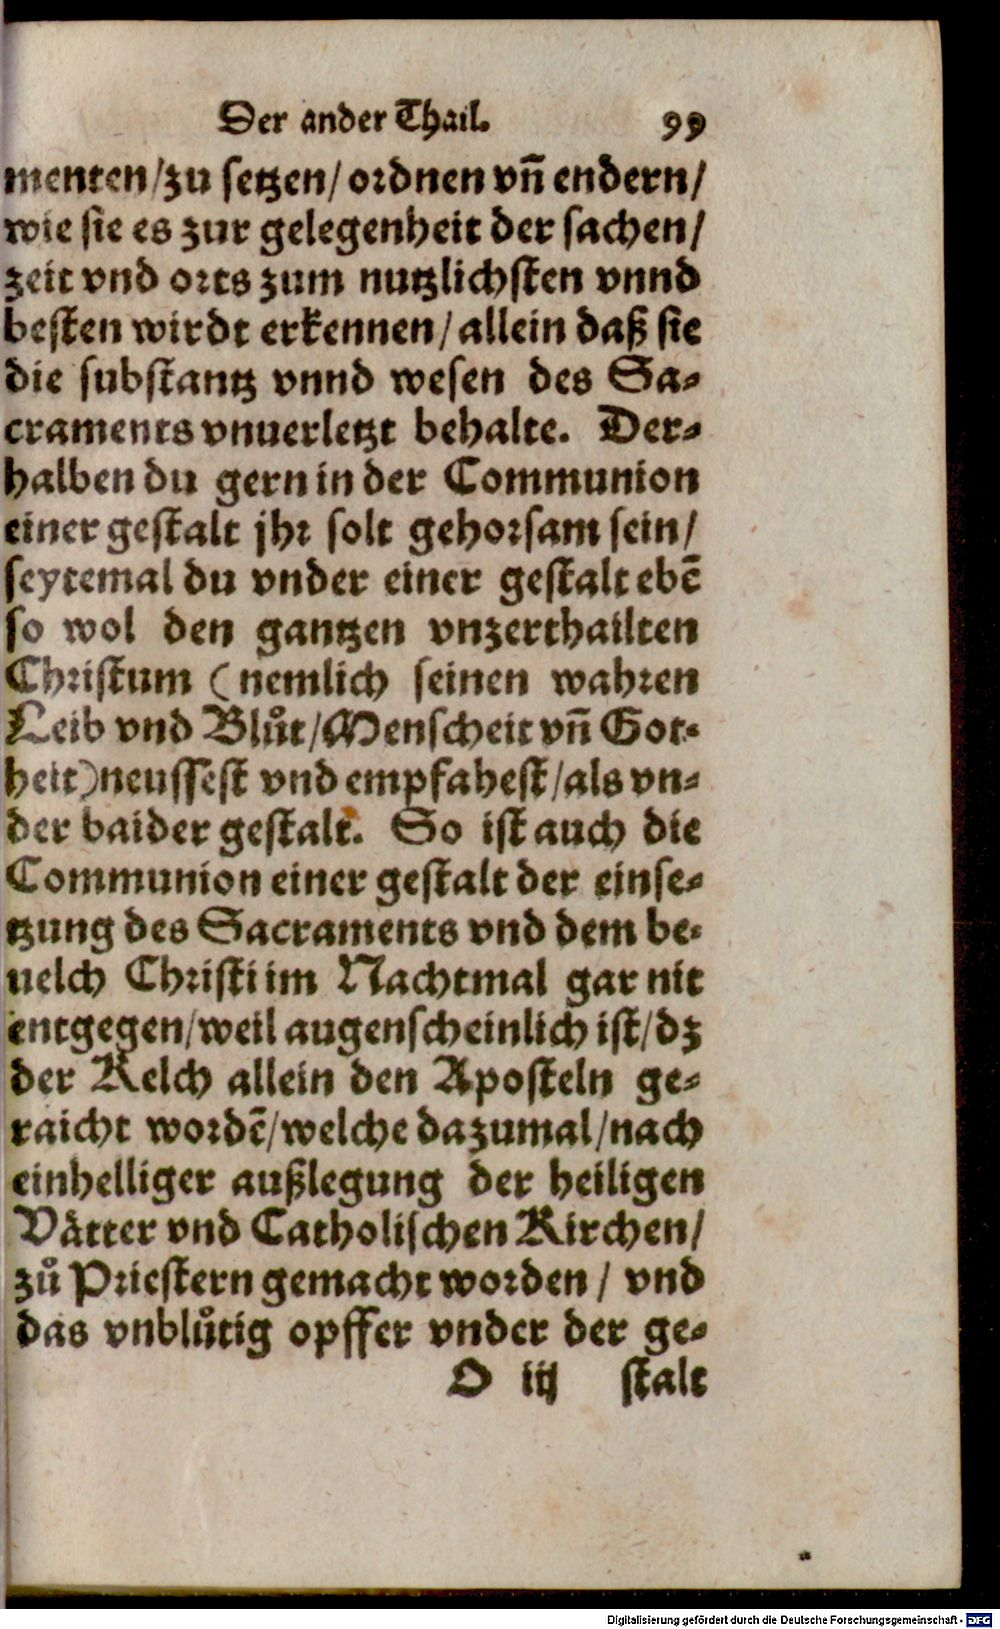 Der ander Thail. 99
menten/zu setzen/ordnen vñ endern/
wie sie es zur gelegenheit der sachen/
zeit vnd orts zum nutzlichsten vnnd
besten wirdt erkennen/allein daß sie
die substantz vnnd wesen des Sa-
craments vnuerletzt behalte. Der-
halben du gern in der Communion
einer gestalt jhr solt gehorsam sein/
seytemal du vnder einer gestalt ebē
so wol den gantzen vnzerthailten
Christum (nemlich seinen wahren
Leib vnd Blůt/Menscheit vñ Got-
heit) neussest vnd empfahest/als vn-
der baider gestalt. So ist auch die
Communion einer gestalt der einse-
tzung des Sacraments vnd dem be-
uelch Christi im Nachtmal gar nit
entgegen/weil augenscheinlich ist/dz
der Kelch allein den Aposteln ge-
raicht wordē/welche dazumal/nach
einhelliger außlegung der heiligen
Vätter vnd Catholischen Kirchen/
zů Priestern gemacht worden/ vnd
das vnblůtig opffer vnder der ge-
O iij stalt
Digitalisierung gefördert durch die Deutsche Forschungsgemeinschaft - DFG